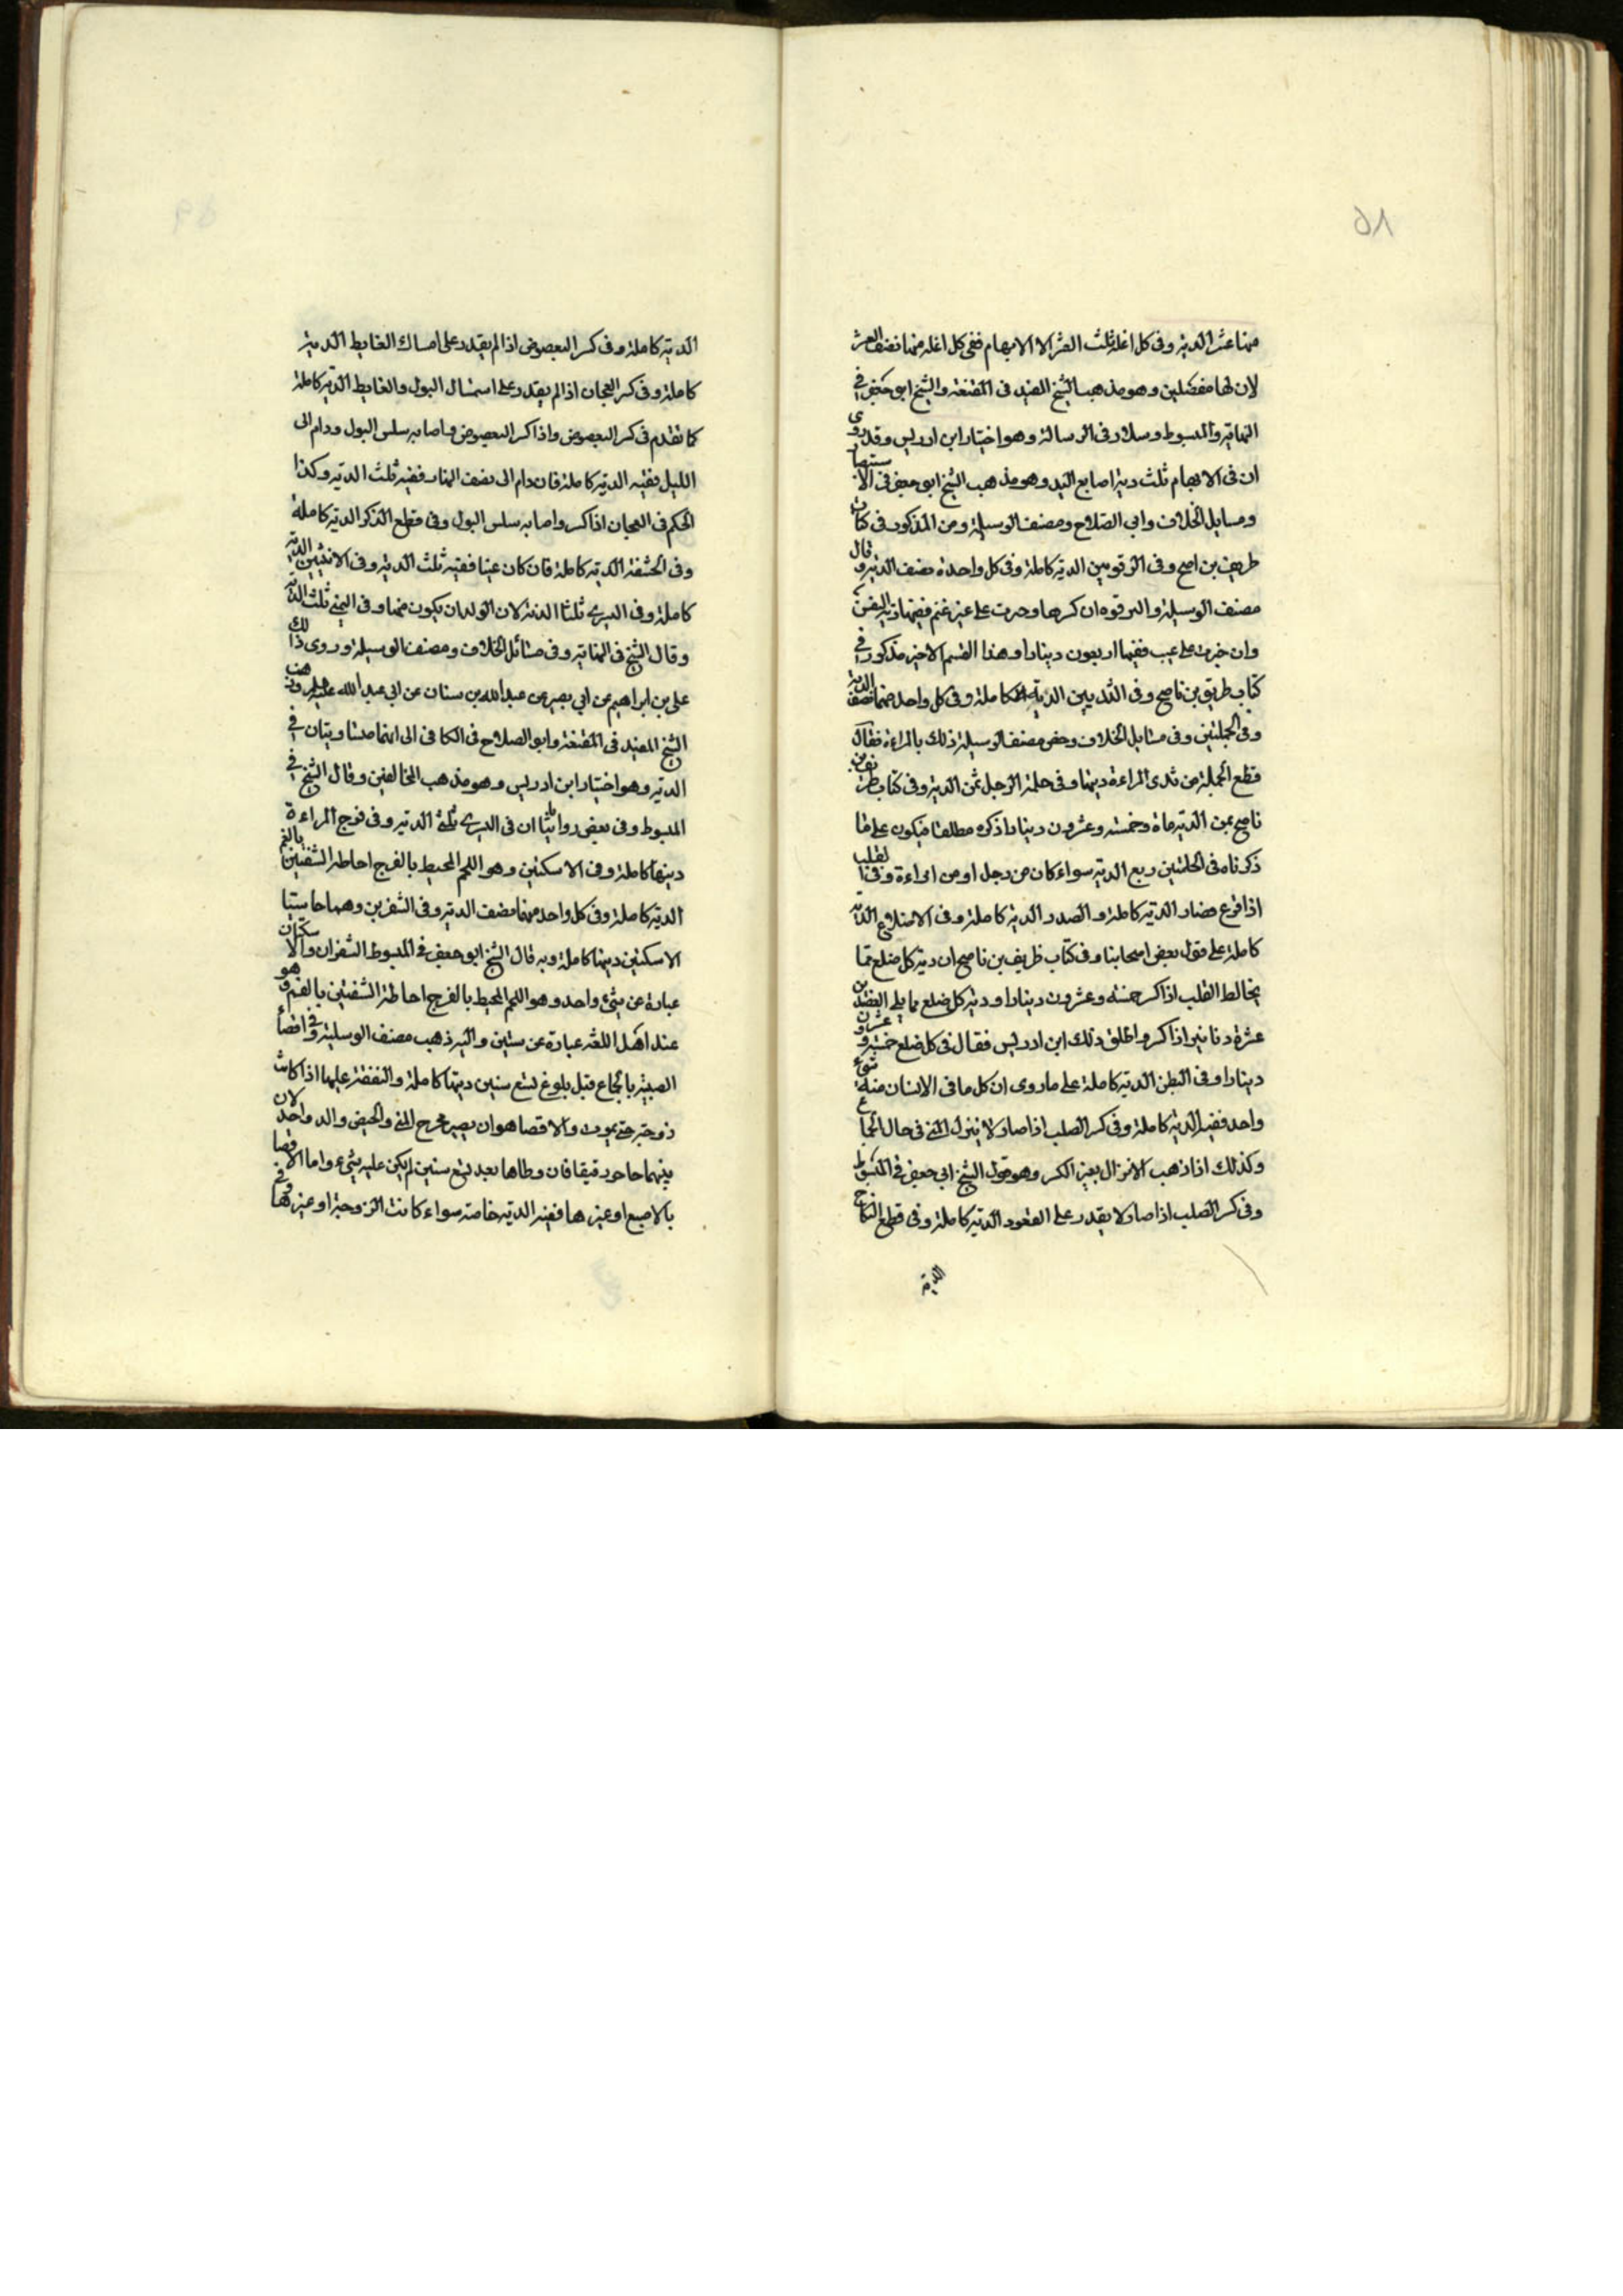 ۵۸
منها عشر الدية وفى كل انملة ثلث العشر الا الابهام ففى كل انملة منها نصف العشر
لان لها مفصلين وهو مذهب الشيخ المفيد فى المقنعة والشيخ ابى جعفر فى
النهاية والمبسوط وسلار فى الرسالة وهو اختيار ابن ادريس وقد روى
ان فى الابهام ثلث دية اصابع اليد وهو مذهب الشيخ ابو جعفر فى الاستبصار
ومسايل الخلاف وابى الصلاح ومصنف الوسيلة ومن المذكور فى كتاب
ظريف بن ناصح وفى الترقوتين الدية كاملة وفى كل واحدة نصف الدية وقال
مصنف الوسيلة والترقوه ان كسرها وجبرت على غير عثم ففيها دية
وان جبرت على عيب ففيها اربعون دينارا وهذا القسم الاخير مذكور فى
كتاب طريق بن ناصح وفى الثديين الدية كاملة وفى كل واحد منهما نصف الدية
وفى الحلمتين وفى مسايل الخلاف وخص مصنف الوسيلة ذلك بالمراءة فقال
قطع الحلمة من ثدى المراءة ديتها وفى حلمة الرجل ثمن الدية وفى كتاب ظريف بن
ناصح ثمن الدية ماة وخمسة وعشرون دينارا ذكره مطلقا فيكون على ما
ذكرناه فى الحلمتين ربع الدية سواء كان من رجل او من امراءة وفى القلب
اذا فزع فصار الدية كاملة والصدر الدية كاملة وفى الاضلاع الدية
كاملة على قول بعض اصحابنا وفى كتاب ظريف بن ناصح ان دية كل ضلع مما
يخالط القلب اذا كسر خمسة وعشرون دينارا ودية كل ضلع مما يلى العضدين
عشرة دنانير اذا كسر واطلق ذلك ابن ادريس فقال فى كل ضلع خمسة وعشرون
دينارا وفى البطن الدية كاملة على ما روى ان كل ما فى الانسان منه شىء
واحد ففيه الدية كاملة وفى كسر الصلب اذا صار لا ينزل المنى فى حال الجماع
وكذلك اذا ذهب الانزال بغير الكسر وهو قول الشيخ ابى جعفر فى المبسوط
وفى كسر الصلب اذا صار لا يقدر على القعود الدية كاملة وفى قطع النكاح
الدية
۵۹
الدية كاملة وفى كسر البعصوص اذا لم يقدر على امساك الغايط الدية
كاملة وفى كسر العجان اذا لم يقدر على استمساك البول والغايط الدية كاملة
كما تقدم فى كسر البعصوص واذا كسر البعصوص واصابه سلس البول ودام الى
الليل ففيه الدية كاملة فان دام الى نصف النهار ففيه ثلث الدية وكذا
الحكم فى العجان اذا كسر واصابه سلس البول وفى قطع الذكر الدية كاملة
وفى الحشفة الدية كاملة فان كان عنينا ففيه ثلث الدية وفى الانثيين الدية
كاملة وفى اليسرى ثلثا الدية لان الولدان يكون منها وفى اليمنى ثلث الدية
وقال الشيخ فى النهاية وفى مسائل الخلاف ومصنف الوسيلة وروى ذلك
على بن ابراهيم عن ابى بصير عن عبد الله بن سنان عن ابى عبد الله عليه السلم وذهب
الشيخ المفيد فى المقنعة وابو الصلاح فى الكافى الى انهما متساويتان فى
الدية وهو اختيار ابن ادريس وهو مذهب المخالفين وقال الشيخ فى
المبسوط وفى بعض رواياتنا ان فى اليسرى ثلثى الدية وفى فرج المراءة
ديتها كاملة وفى الاسكتين وهو اللحم المحيط بالفرج احاطة الشفتين بالفم
الدية كاملة وفى كل واحد منهما نصف الدية وفى الشفرين وهما حاشيتا
الاسكتين ديتها كاملة وبه قال الشيخ ابو جعفر فى المبسوط الشفران والاسكتان
عبارة عن شىء واحد وهو اللحم المحيط بالفرج احاطة الشفتين بالفم وهو
عند اهل اللغة عبارة عن شيئين واليه ذهب مصنف الوسيلة وفى افضاء
الصبية بالجماع قبل بلوغ تسع سنين ديتها كاملة والنفقة عليها اذا كانت
زوجته حتى يموت والافضا هو ان يصير مخرج المنى والحيض والولد واحد لان
بينهما حاجز دقيقا فان وطاها بعد تسع سنين لم يكن عليه شىء واما الافضا
بالاصبع او غيرها ففيه الدية خاصة سواء كانت الزوجة او غيرها وفى